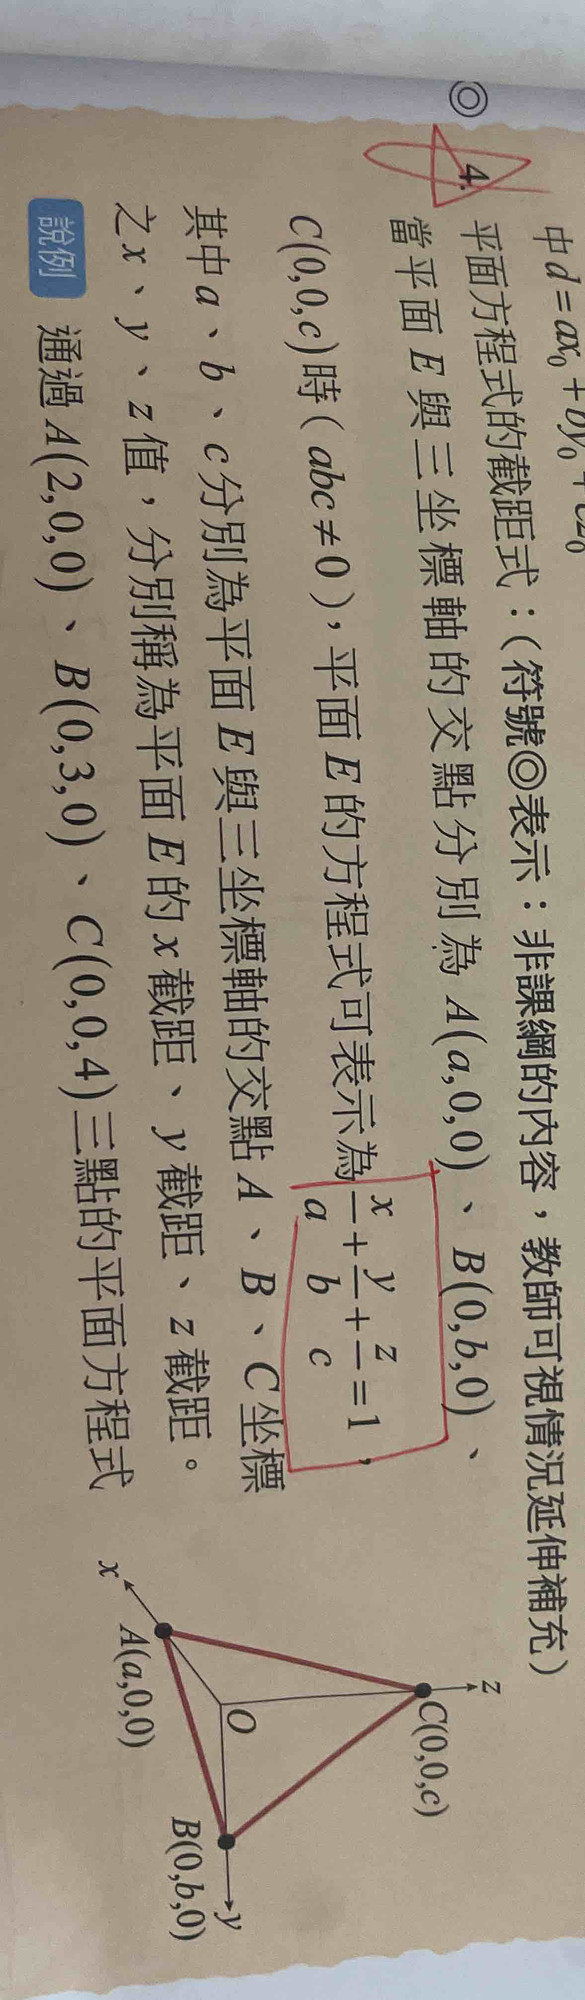 中d=ax₀+by₀+cz₀
◎ 4. 平面方程式的截距式：（符號◎表示：非課綱的內容，教師可視情況延伸補充）
當平面E與三坐標軸的交點分別為A(a,0,0)、B(0,b,0)、
C(0,0,c)時（abc≠0），平面E的方程式可表示為x/a+y/b+z/c=1，
其中a、b、c分別為平面E與三坐標軸的交點A、B、C坐標
之x、y、z值，分別稱為平面E的x截距、y截距、z截距。
說例 通過A(2,0,0)、B(0,3,0)、C(0,0,4)三點的平面方程式
z
C(0,0,c)
O
y
B(0,b,0)
A(a,0,0)
x